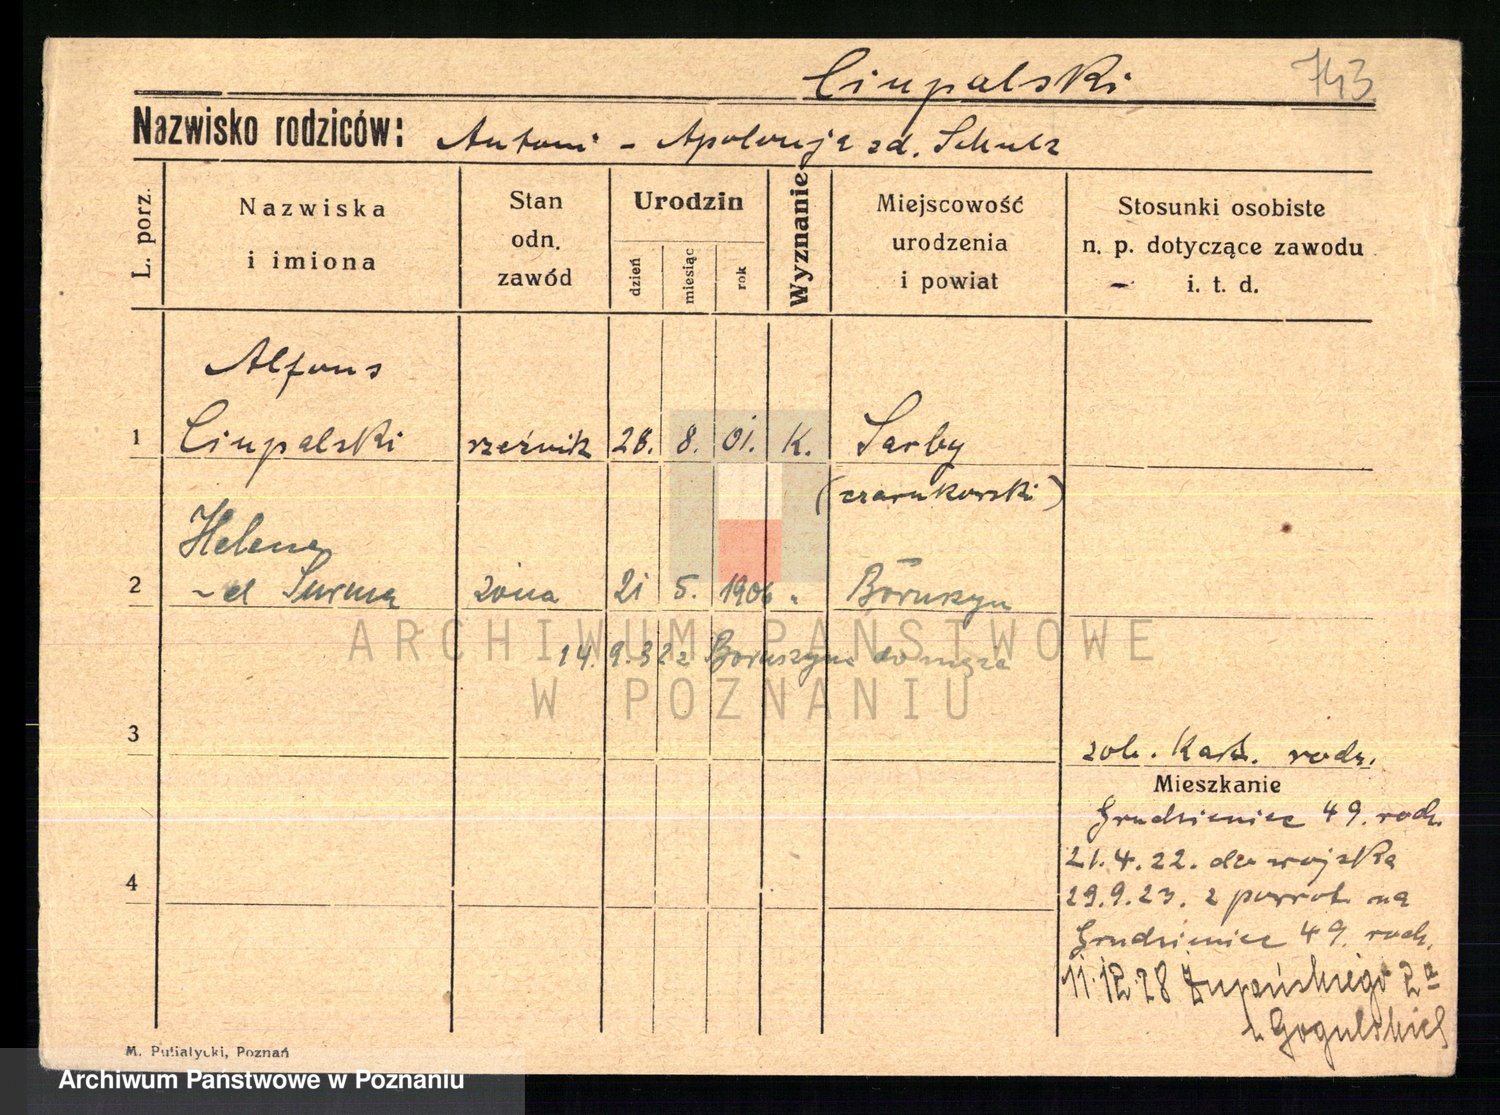 Ciupalski 743
Nazwisko rodziców: Antoni - Apolonja zd. Schulz
L. porz.
Nazwiska
i imiona
Stan
odn.
zawód
Urodzin
dzień
miesiąc
rok
Wyznanie
Miejscowość
urodzenia
i powiat
Stosunki osobiste
n. p. dotyczące zawodu
i. t. d.
Alfons
1 Ciupalski rzeźnik 28. 8. 01. K. Sarby
(czarnkowski)
Helena
2 zd Surma żona 21 5. 1906 " Boruszyn
14. 9. 32 z Boruszyna do męża
3
zob. Kart. rodz.
Mieszkanie
Grudzieniec 49. rodz.
21.4.22. do wojska
4
29.9.23. z powrot. na
Grudzieniec 49. rodz.
11.12.28 Żupańskiego 2a
u Gogulskich
M. Putiatycki, Poznań
ARCHIWUM PAŃSTWOWE
W POZNANIU
Archiwum Państwowe w Poznaniu